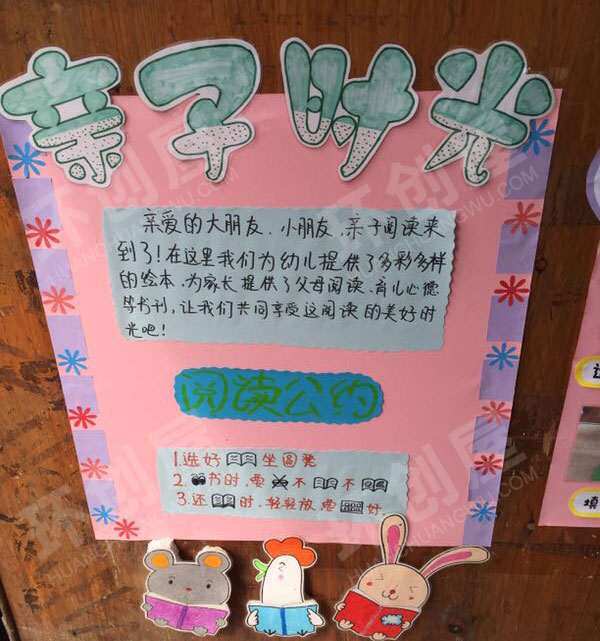 亲子时光
亲爱的大朋友、小朋友、亲子阅读来
到了!在这里我们为幼儿提供了多彩多样
的绘本、为家长提供了父母阅读、育儿心德
等书刊,让我们共同享受这阅读的美好时
光吧!
阅读公约
1.选好 坐圆凳
2. 书时,要 不 不
3.还 时,轻轻放要 好.
填
环创屋
HUANCHUANGWU.COM